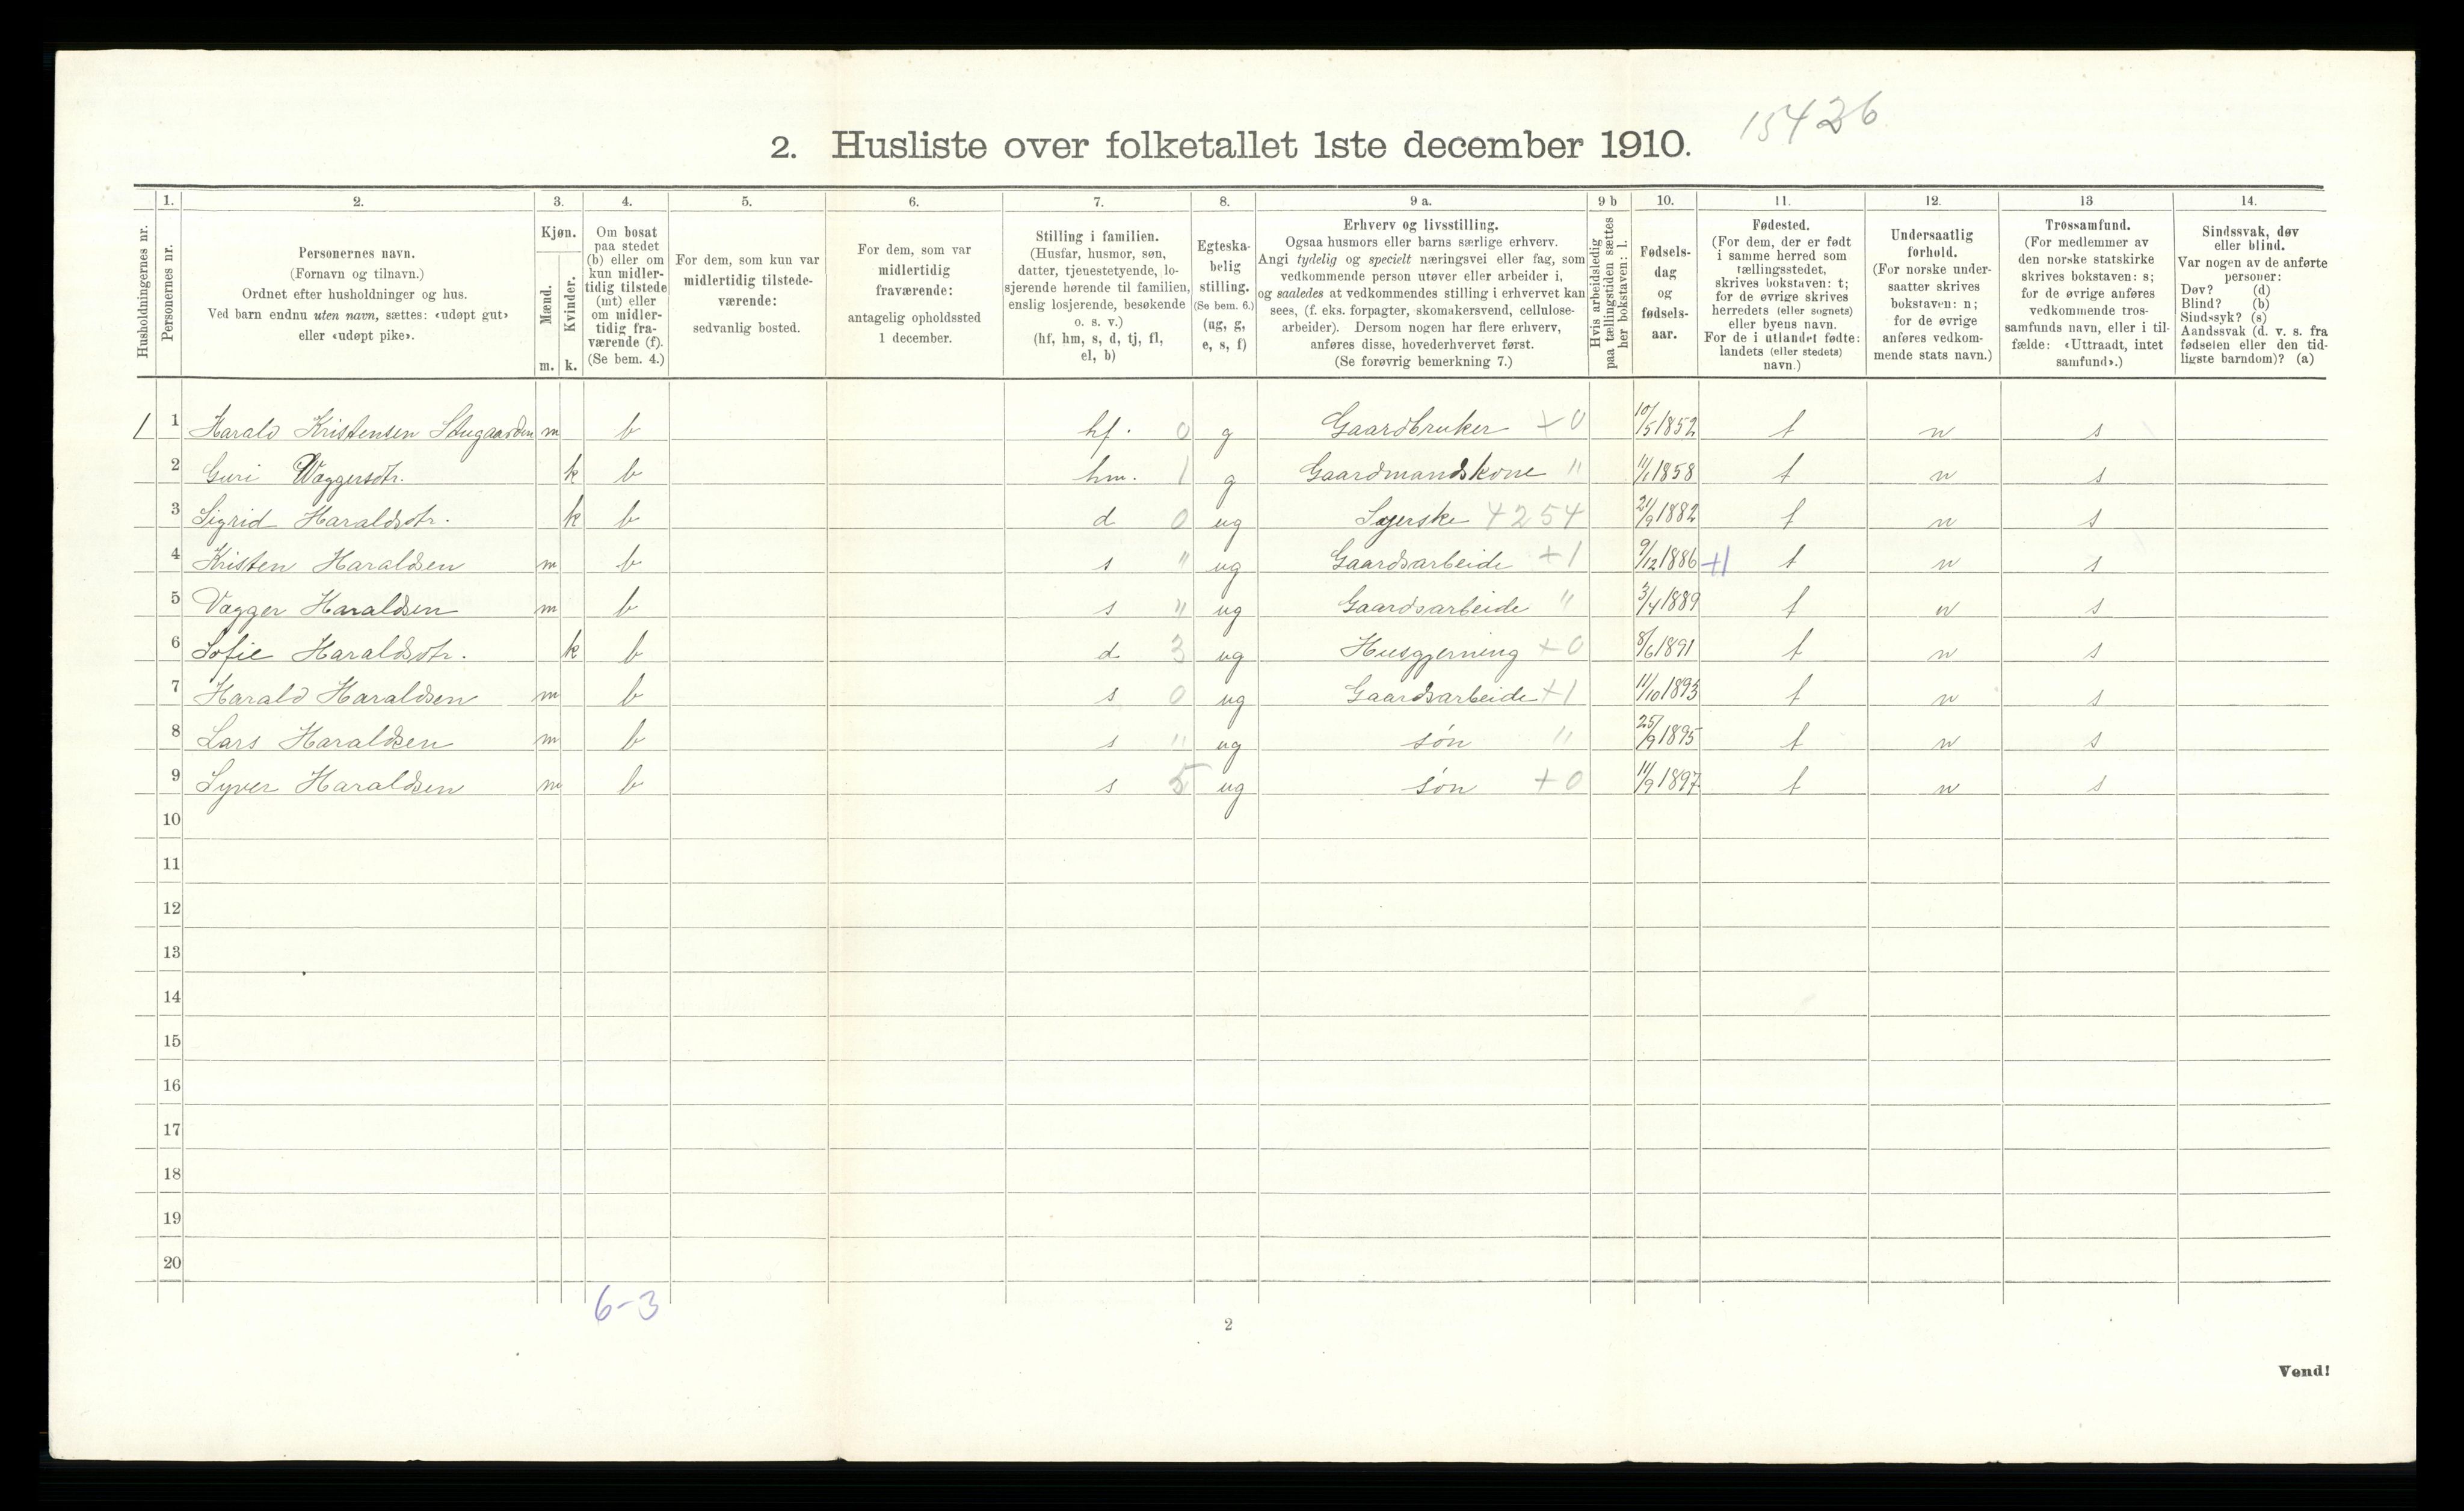 15426
2. Husliste over folketallet 1ste december 1910.
Husholdningernes nr.
1.
Personernes nr.
2.
Personernes navn.
(Fornavn og tilnavn.)
Ordnet efter husholdninger og hus.
Ved barn endnu uten navn, sættes: «udøpt gut»
eller «udøpt pike».
3.
Kjøn.
Mænd.
Kvinder.
m. k.
4.
Om bosat
paa stedet
(b) eller om
kun midler-
tidig tilstede
(mt) eller
om midler-
tidig fra-
værende (f).
(Se bem. 4.)
5.
For dem, som kun var
midlertidig tilstede-
værende:
sedvanlig bosted.
6.
For dem, som var
midlertidig
fraværende:
antagelig opholdssted
1 december.
7.
Stilling i familien.
(Husfar, husmor, søn,
datter, tjenestetyende, lo-
sjerende hørende til familien,
enslig losjerende, besøkende
o. s. v.)
(hf, hm, s, d, tj, fl,
el, b)
8.
Egteska-
belig
stilling.
(Se bem. 6.)
(ug, g,
e, s, f)
9 a.
Erhverv og livsstilling.
Ogsaa husmors eller barns særlige erhverv.
Angi tydelig og specielt næringsvei eller fag, som
vedkommende person utøver eller arbeider i,
og saaledes at vedkommendes stilling i erhvervet kan
sees, (f. eks. forpagter, skomakersvend, cellulose-
arbeider). Dersom nogen har flere erhverv,
anføres disse, hovederhvervet først.
(Se forøvrig bemerkning 7.)
9 b
Hvis arbeidsledig
paa tællingstiden sættes
her bokstaven: l.
10.
Fødsels-
dag
og
fødsels-
aar.
11.
Fødested.
(For dem, der er født
i samme herred som
tællingsstedet,
skrives bokstaven: t;
for de øvrige skrives
herredets (eller sognets)
eller byens navn.
For de i utlandet fødte:
landets (eller stedets)
navn.)
12.
Undersaatlig
forhold.
(For norske under-
saatter skrives
bokstaven: n;
for de øvrige
anføres vedkom-
mende stats navn.)
13
Trossamfund.
(For medlemmer av
den norske statskirke
skrives bokstaven: s;
for de øvrige anføres
vedkommende tros-
samfunds navn, eller i til-
fælde: «Uttraadt, intet
samfund».)
14.
Sindssvak, døv
eller blind.
Var nogen av de anførte
personer:
Døv? (d)
Blind? (b)
Sindssyk? (s)
Aandssvak (d. v. s. fra
fødselen eller den tid-
ligste barndom)? (a)
1 1 Harald Kristensen Stugaarden m b hf. 0 g Gaardbruker +0 10/5 1852 t n s
2 Guri Vaggersdtr. k b hm. 1 g Gaardmandskone " 11/1 1858 t n s
3 Sigrid Haraldsdtr. k b d 0 ug Syerske 4254 21/9 1882 t n s
4 Kristen Haraldsen m b s " ug Gaardsarbeide +1 9/12 1886 +1 t n s
5 Vagger Haraldsen m b s " ug Gaardsarbeide " 3/4 1889 t n s
6 Sofie Haraldsdtr. k b d 3 ug Husgjerning +0 8/6 1891 t n s
7 Harald Haraldsen m b s 0 ug Gaardsarbeide +1 11/10 1893 t n s
8 Lars Haraldsen m b s " ug søn " 25/9 1895 t n s
9 Syver Haraldsen m b s 5 ug søn +0 11/9 1897 t n s
10
11
12
13
14
15
16
17
18
19
20
6-3
2
Vend!